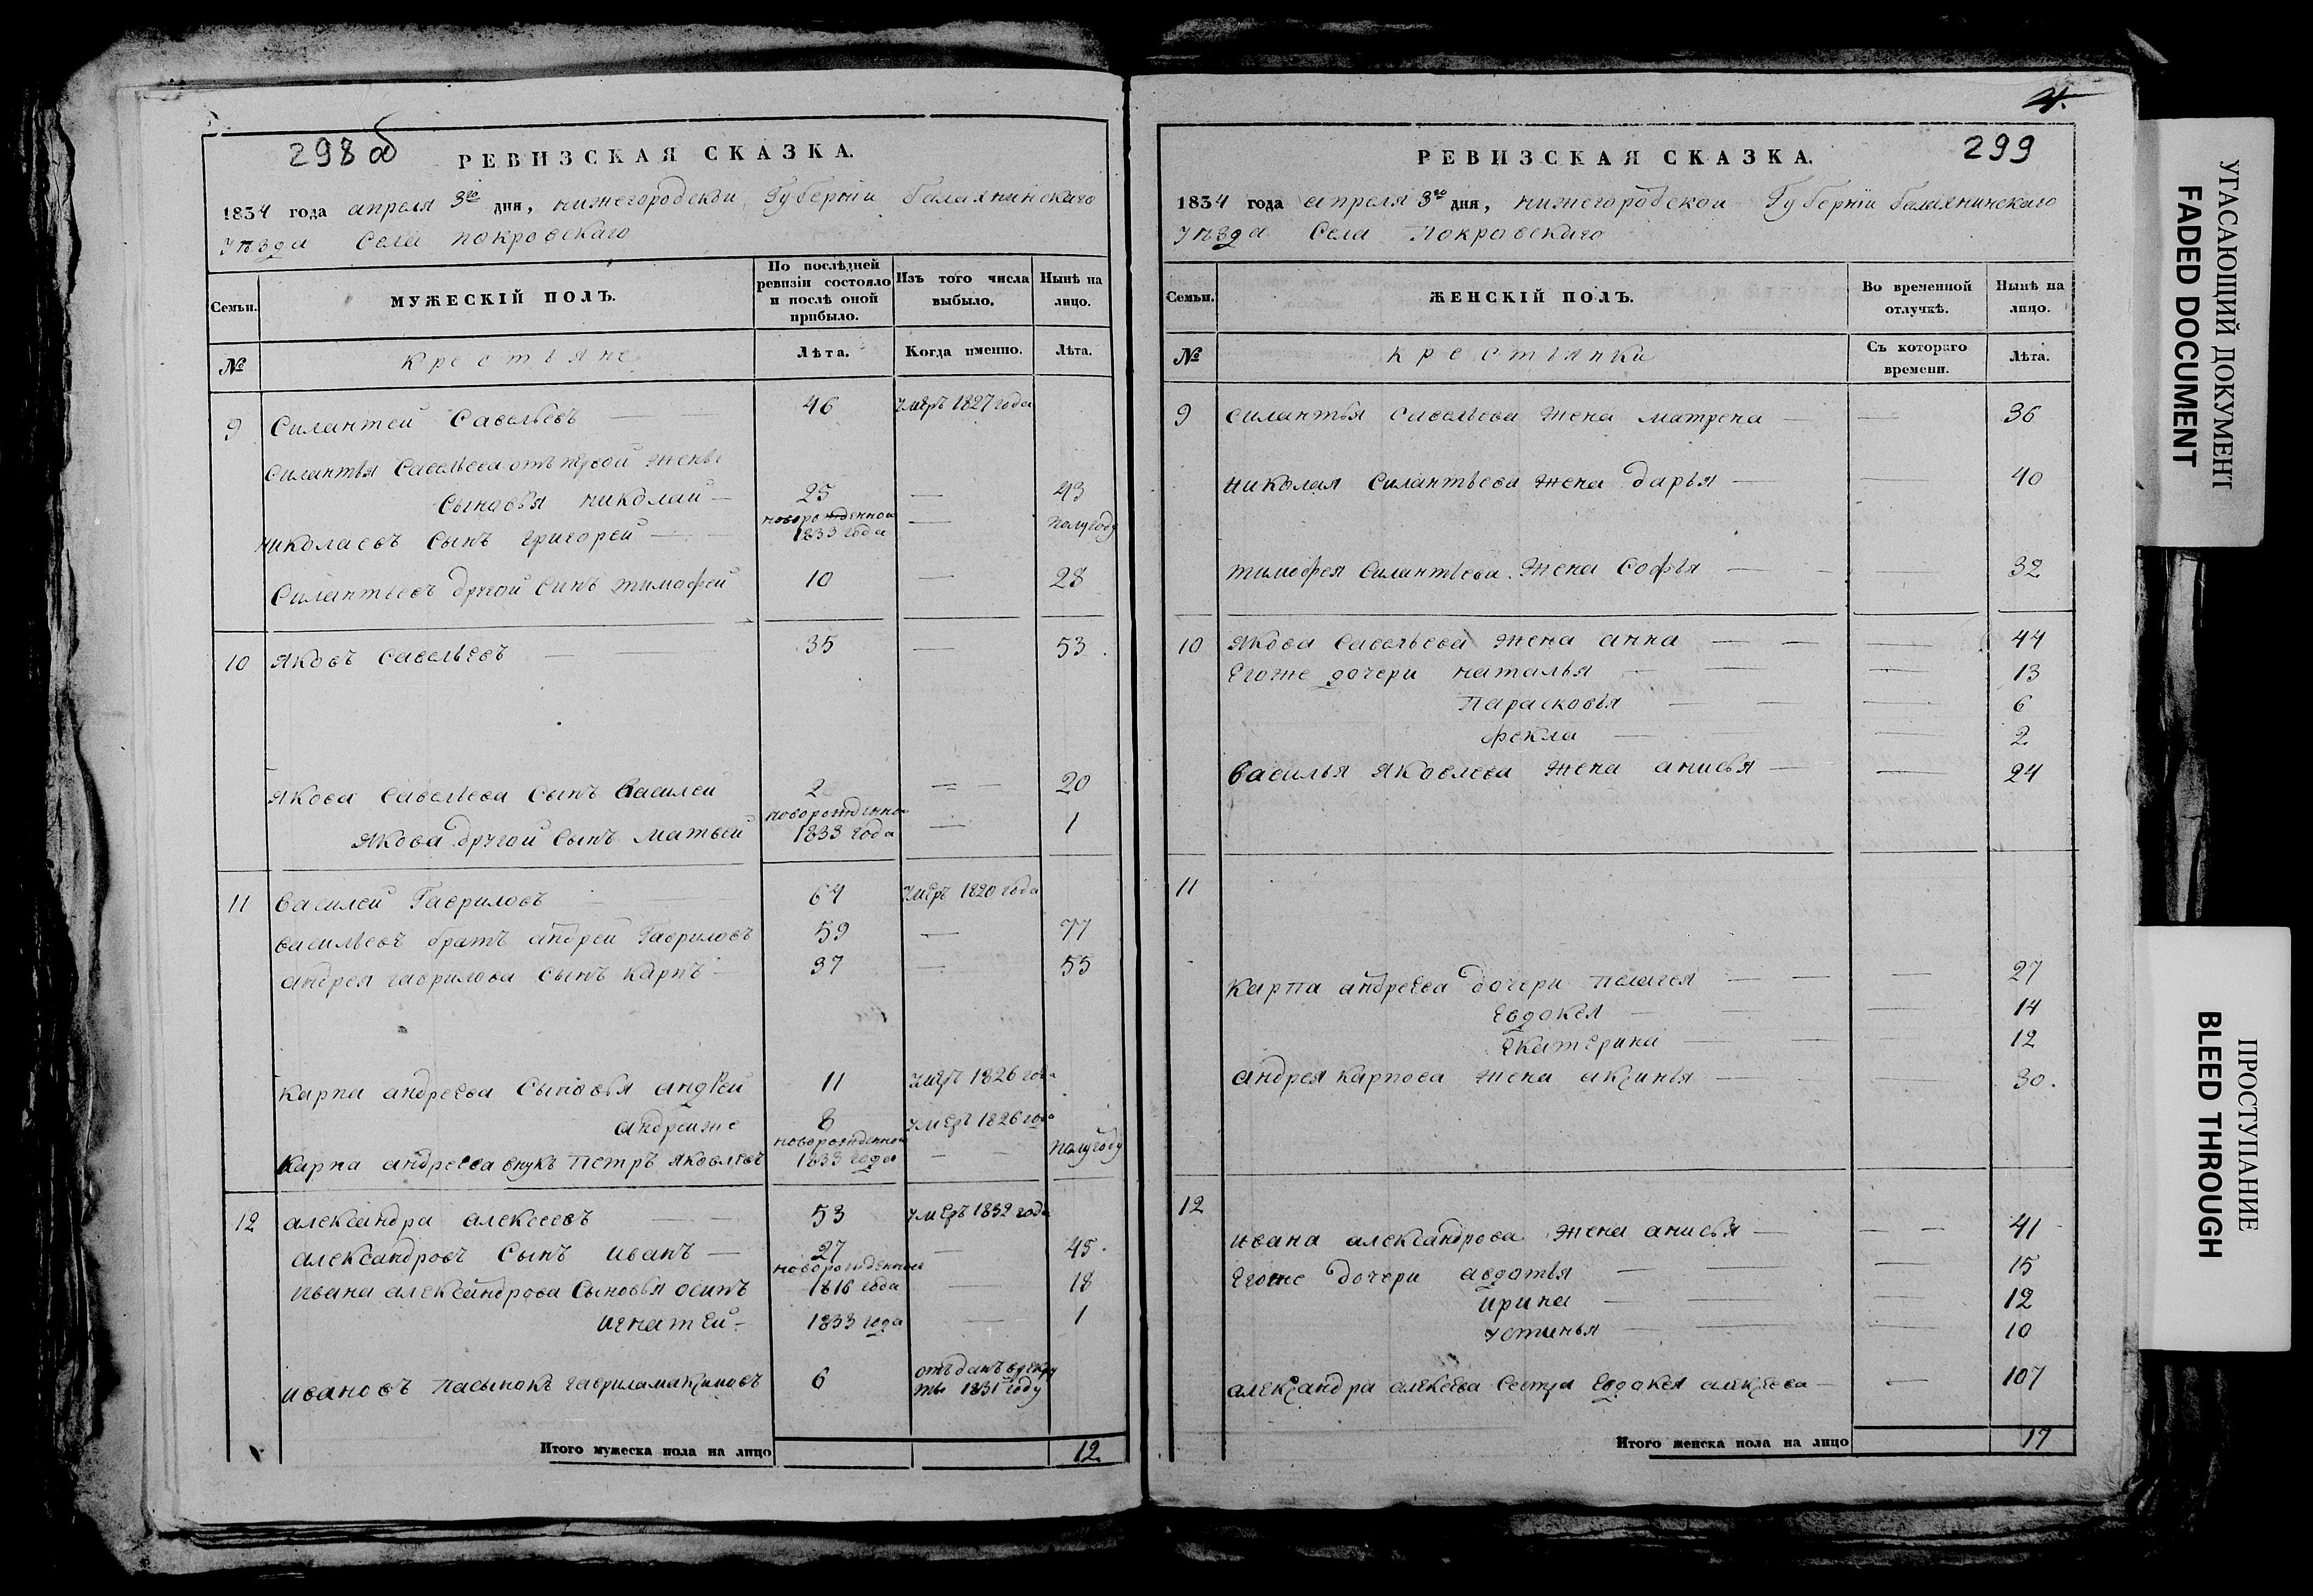 298 об
РЕВИЗСКАЯ СКАЗКА.
1834 года апреля 3го дня, нижегородской Губернiи балахнинскаго
уѣзда Села покровскаго
Семьи.
МУЖЕСКIЙ ПОЛЪ.
По послѣдней ревизiи состояло и послѣ оной прибыло.
Изъ того числа выбыло.
Нынѣ на лицо.
№
крестьяне
Лѣта.
Когда именно.
Лѣта.
9 Силантей Савельевъ — 46 умеръ 1827 года
Силантья Савельева отъ первой жены
Сыновья николай — 25 — 43
николаевъ Сынъ григорей — новорожденной 1833 года — полугоду
Силантьевъ другой Сынъ тимофей 10 — 28
10 Яковъ Савельевъ — 35 — 53.
Якова Савельева Сынъ Василей 2 — 20
Якова другой Сынъ матвей новорожденной 1833 года — 1
11 Василей Гавриловъ — 64 умеръ 1820 года
васильевъ братъ андрей Гавриловъ 59 — 77
андрея гаврилова Сынъ карпъ — 37 — 55
карпа андреева Сыновья андрей 11 умеръ 1826 года
андрейже 8 умеръ 1826 года
карпа андреева внукъ петръ яковлевъ новорожденной 1833 года — полугоду
12 александра алексеевъ — 53 умеръ 1832 года
александровъ Сынъ иванъ — 27 — 45.
ивана александрова Сыновья осипъ новорожденной 1816 года — 18
игнатей — 1833 года — 1
ивановъ пасынокъ гаврила максимовъ 6 отъданъ в рекруты 1831 году
Итого мужеска пола на лицо 12.
4.
299
РЕВИЗСКАЯ СКАЗКА.
1834 года апреля 3го дня, нижегородской Губернiи балахнинскаго
уѣзда Села Покровскаго
Семьи.
ЖЕНСКIЙ ПОЛЪ.
Во временной отлучкѣ.
Нынѣ на лицо.
№
крестьянки
Съ котораго времени.
Лѣта.
9 Силантья Савельева жена матрена — — 36
николая Силантьева жена дарья — — 40
тимофея Силантьева жена Софья — — 32
10 якова Савельева жена анна — — 44
Егоже дочери наталья — — 13
парасковья — — 6
фекла — — 2
Василья яковлева жена анисья — — 24
11
карпа андреева дочери пелагея — — 27
Евдокея — — 14
Екатерина — — 12
андрея карпова жена аксинья — — 30.
12
ивана александрова жена анисья — — 41
Егоже дочери авдотья — — 15
ирина — — 12
устинья — — 10
александра алексеева Сестра Евдокея алексеева — — 107
Итого женска пола на лицо 17
УГАСАЮЩИЙ ДОКУМЕНТ
FADED DOCUMENT
ПРОСТУПАНИЕ
BLED THROUGH